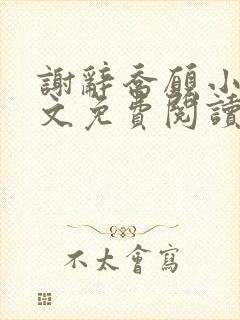 謝辭喬願小
文免費閱讀
不太會寫